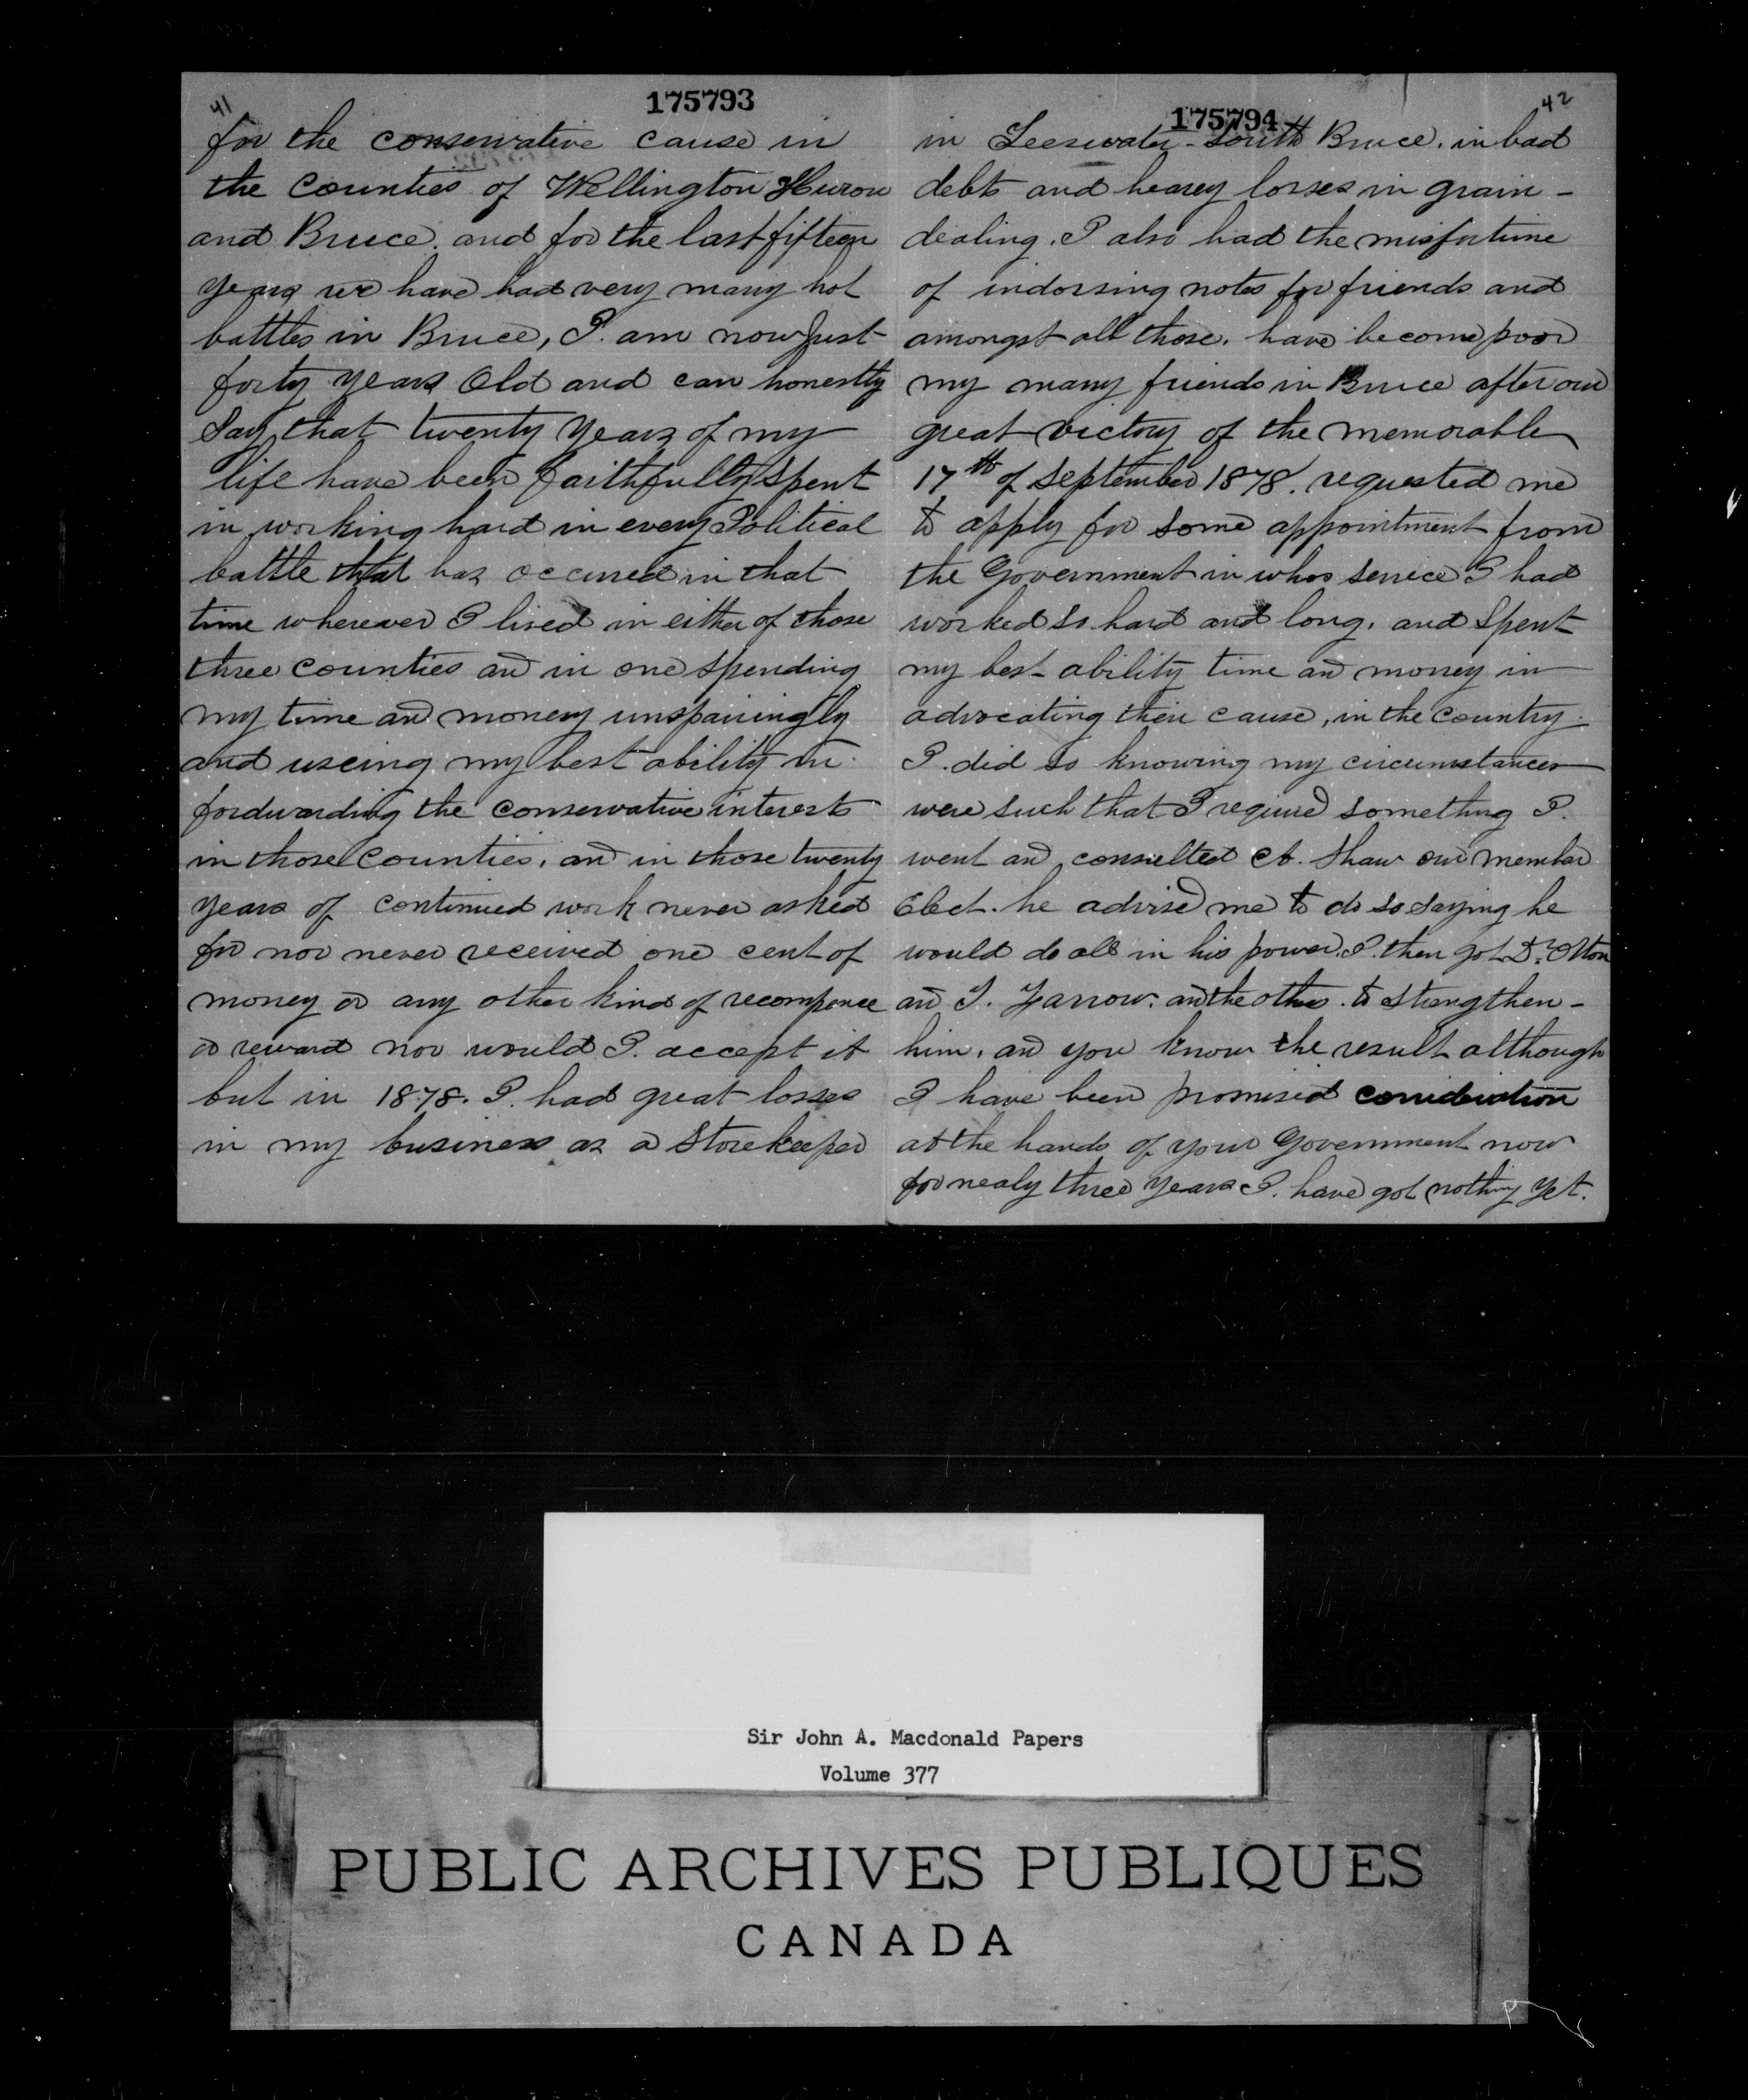 41
175793
for the conservative cause in
the Counties of Wellington Huron
and Bruce. and for the last fifteen
years we have had very many hot
battles in Bruce, I. am now Just
forty years Old and can honestly
Say that twenty Years of my
life have been faithfully Spent
in working hard in every Political
battle that has occured in that
time wherever I lived in either of those
three Counties and in one Spending
my time and money unsparingly
and useing my best ability in
fordwarding the Conservative interests
in those Counties, and in those twenty
years of continued work never asked
for nor never received one cent of
money or any other kind of recompence
or reward nor would I. accept it
but in 1878. I. had great losses
in my business as a Storekeeper
42
175794
in Teeswater - South Bruce. in bad
debts and heavey losses in grain -
dealing. I also had the misfortune
of indorsing notes for friends and
amongst all those. have become poor
my many friends in Bruce after our
great victory of the memorable
17th of September 1878. requested me
to apply for Some appointment from
the Government in whos Service I had
worked So hard and long. and Spent
my best ability time and money in
advocating their cause, in the Country.
I. did So knowing my circumstances
were such that I required something I.
went and consulted A. Shaw our member
Elect. he advised me to do so Saying he
would do all in his power. I. then got
and the others. to Strengthen -
him. and you know the result although
I have been promised consideration
at the hands of your Government now
for nealy three Years I. have got nothing Yet.
Sir John A. Macdonald Papers
Volume 377
PUBLIC ARCHIVES PUBLIQUES
CANADA